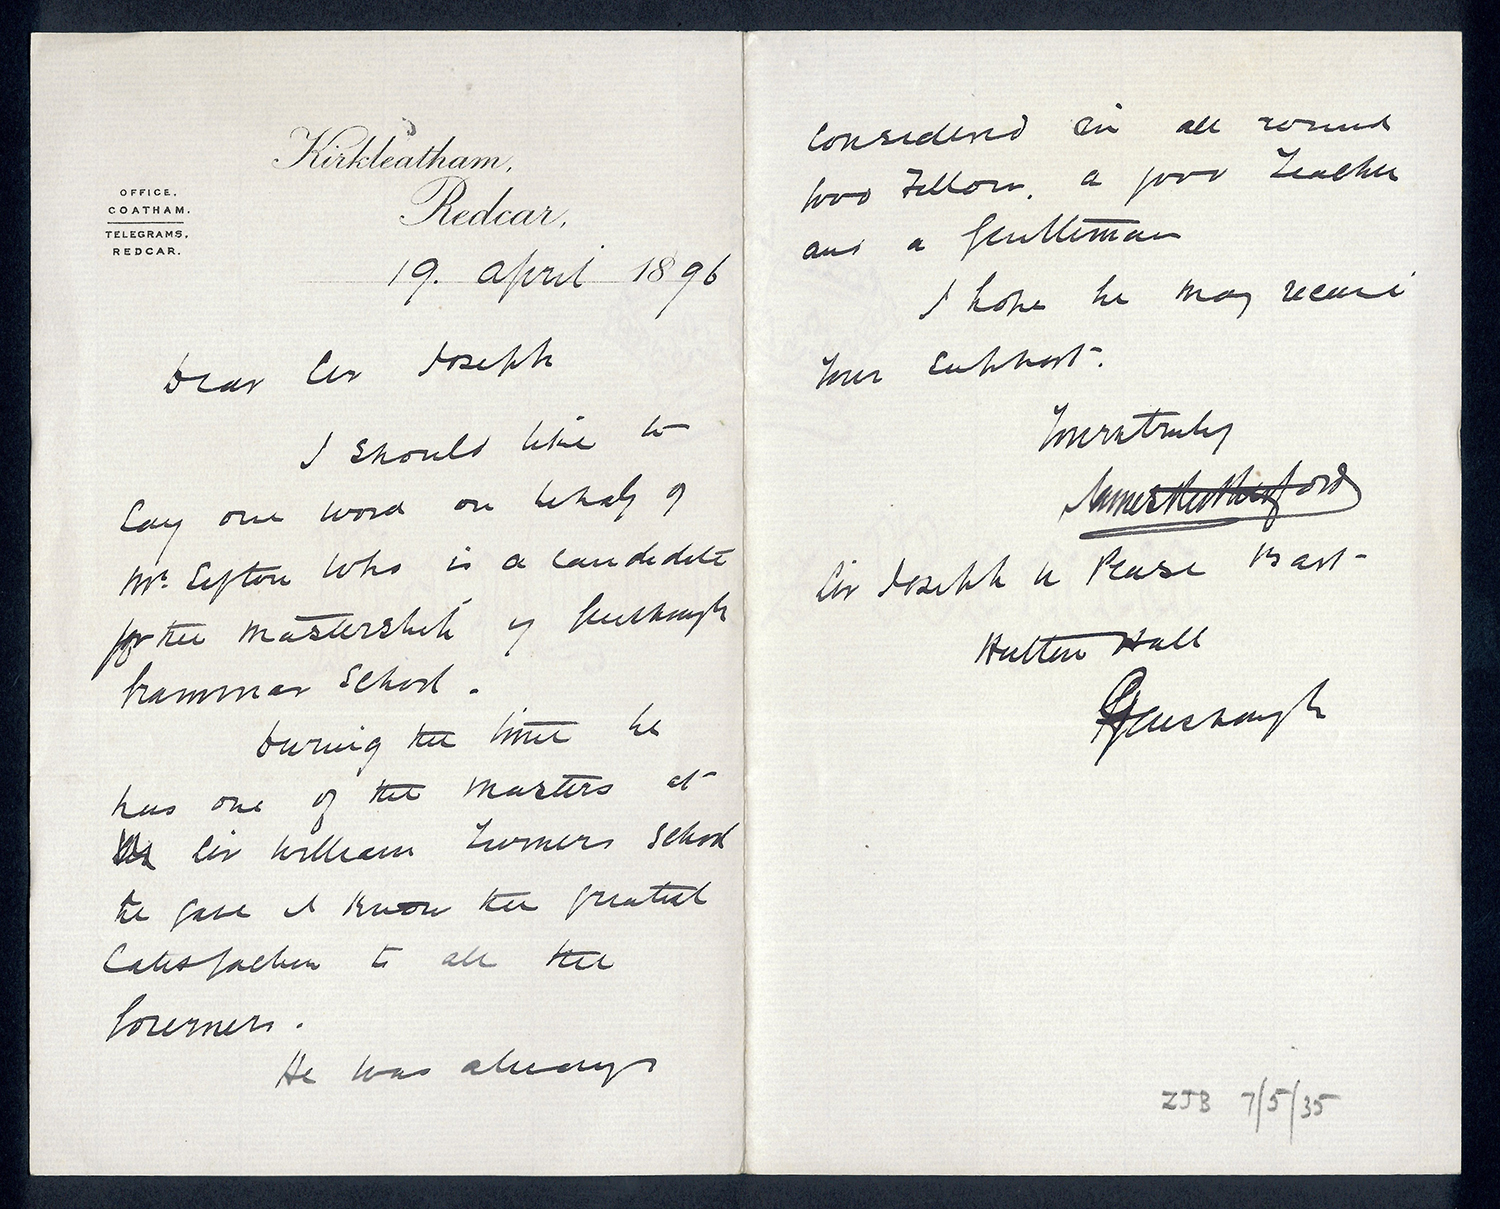 Kirkleatham,
Redcar,
OFFICE.
COATHAM.
TELEGRAMS,
REDCAR.
19. April 1896
Dear Sir Joseph
I should like to
say one word on behalf of
Mr. Sefton who is a candidate
for the mastership of Guisbrough
Grammar School.
During the time he
was one of the masters at
Sir William Turners School
he gave I know the greatest
Satisfaction to all the
Governers.
He was always
considered an all round
good Fellow, a good Teacher
and a Gentleman
I hope he may receive
Your support.
Yours truly
James Rutherford
Sir Joseph W Pease Bart
Hutton Hall
Guisbrough
ZJB 7/5/35